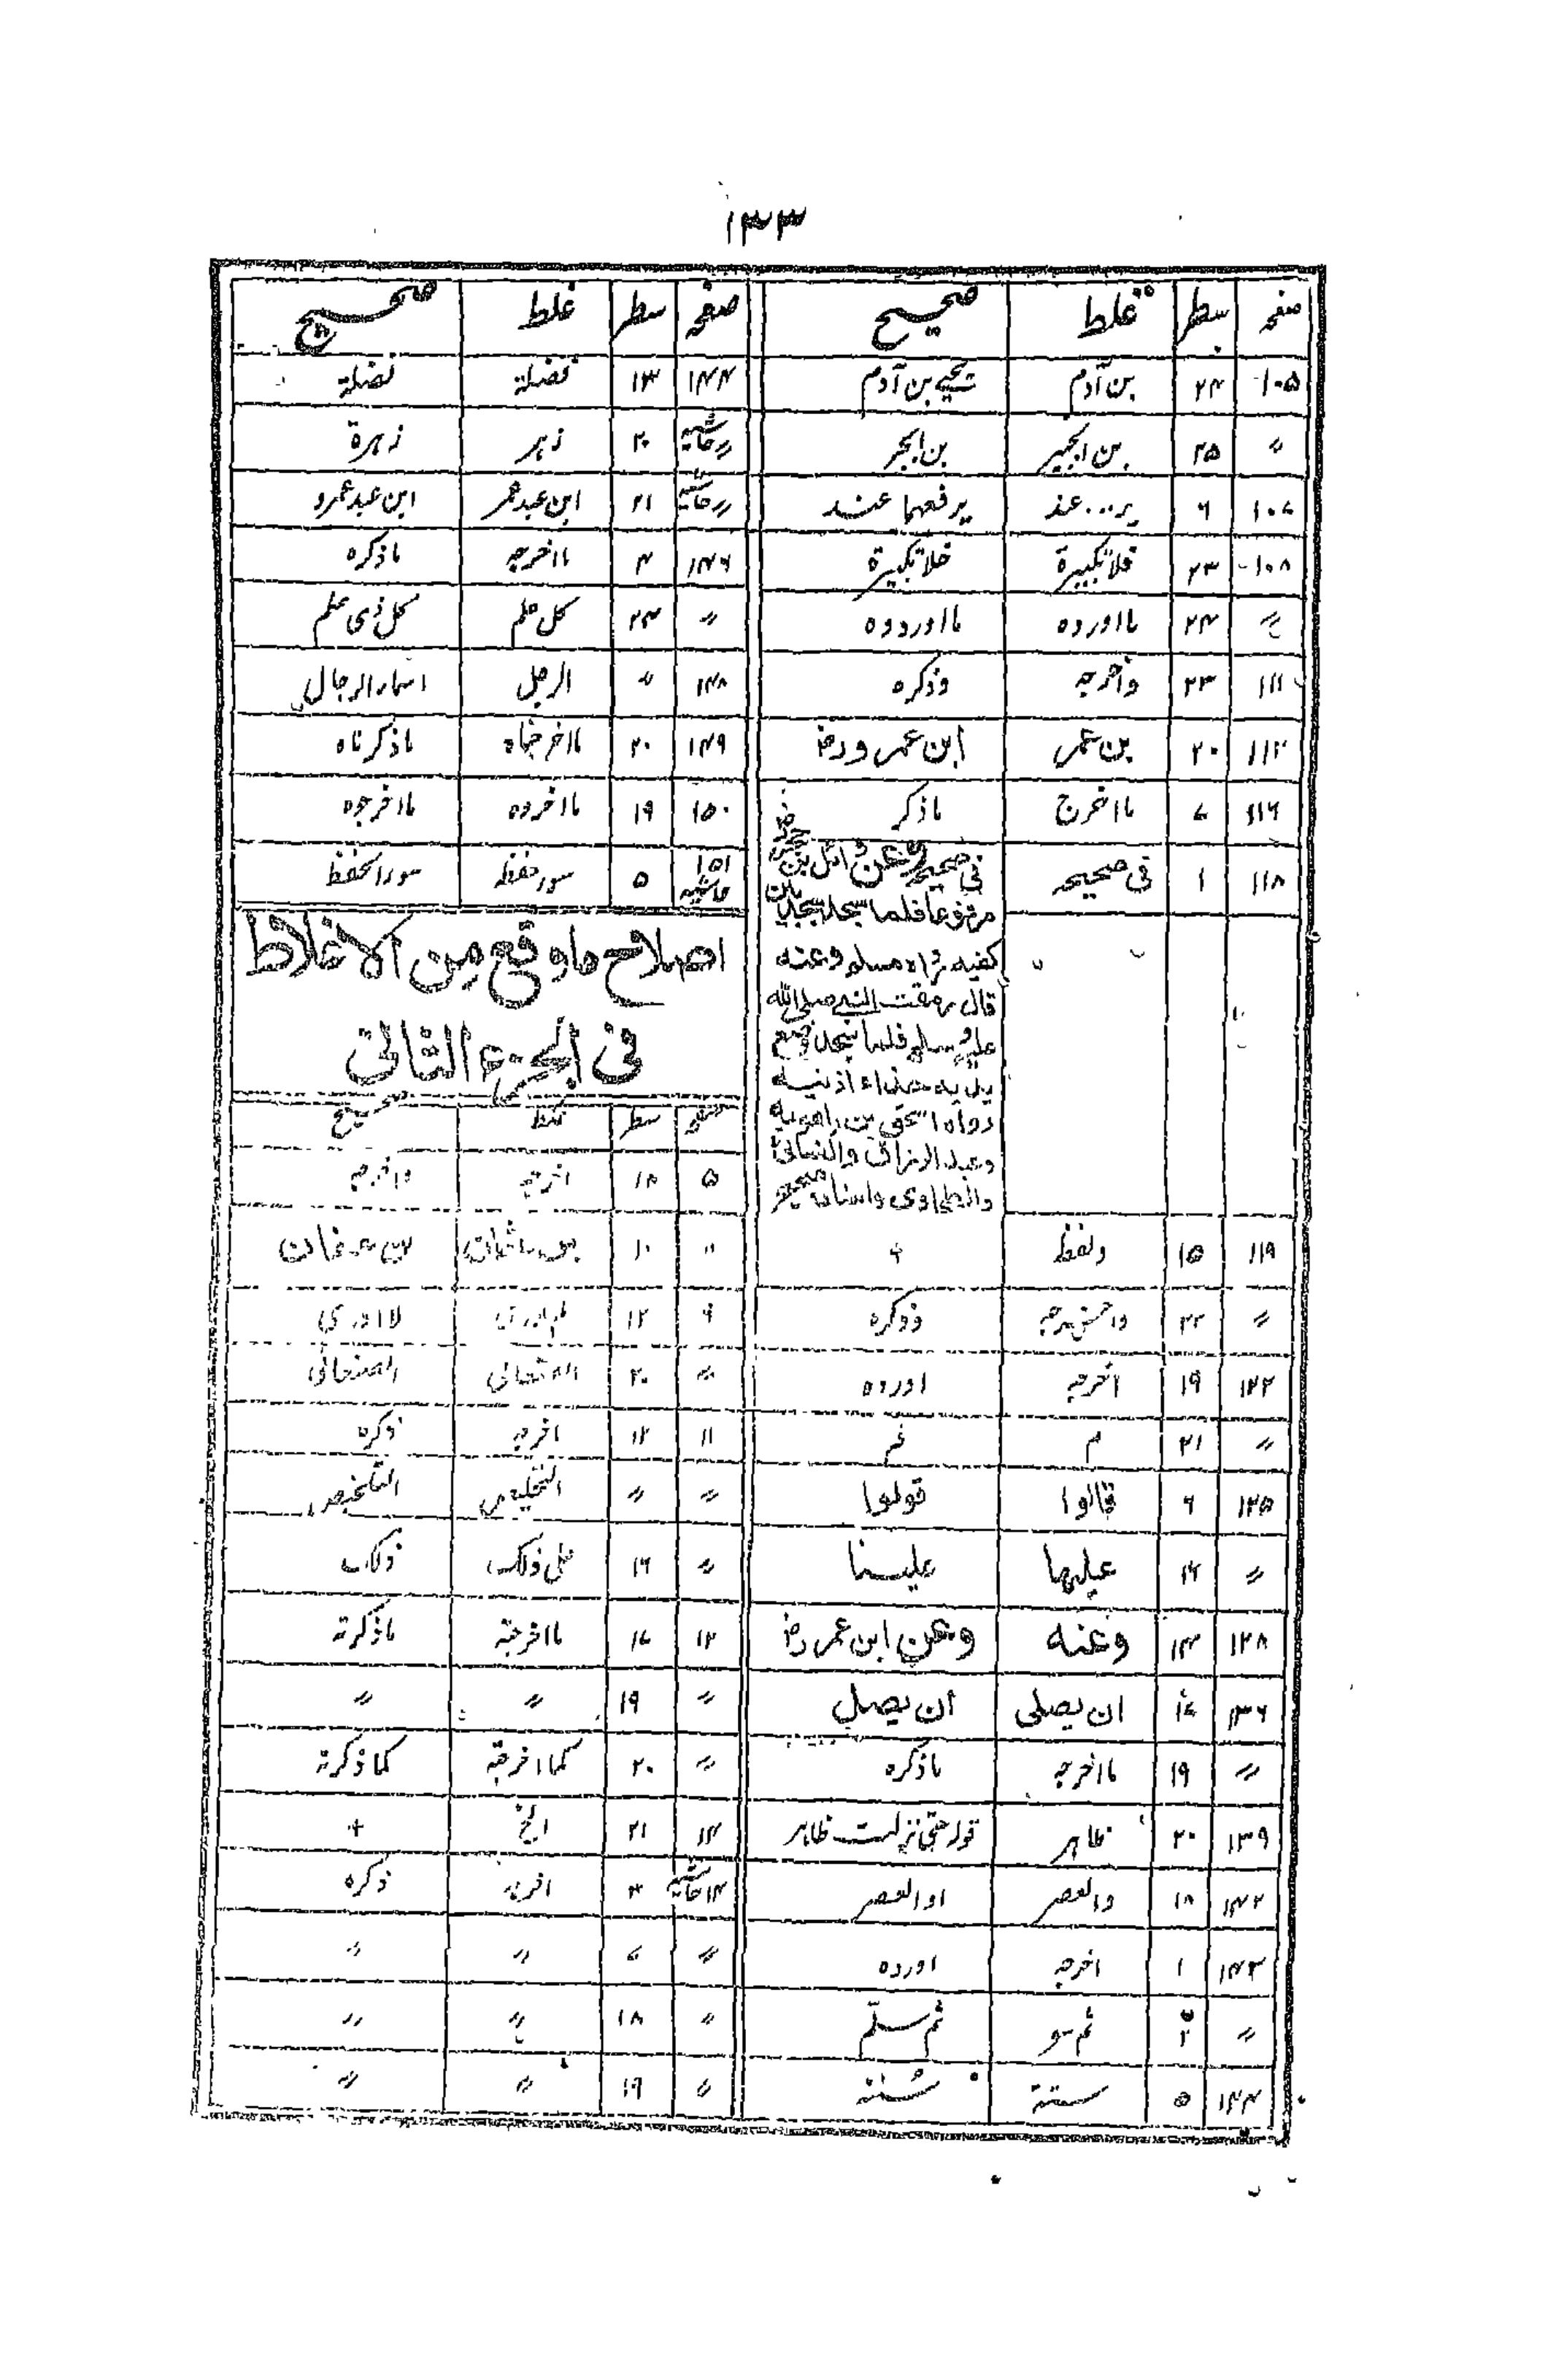 ۱۳۳
صفحہ سطر غلط صحیح
۱۰۵ ۲۴ بن آدم یحیی بن آدم
〃 ۲۵ بن ابجیر بن ابجر
۱۰۷ ۶ یر...عند یرفعهما عند
۱۰۸ ۲۳ فلا تکبیرة خلا تکبیرة
〃 ۲۴ ما اورده ما اوردوه
۱۱۱ ۲۳ واخرجه وذکره
۱۱۲ ۲۰ بن عمر ابن عمرو رض
۱۱۶ ۷ ما اخرج ما ذکر
۱۱۸ ۱ فی صحیحہ فی صحیحہ وعن وائل بن حجر رض
مرفوعا فلما سجد سجد بین
کفیه رواه مسلم وعنه
قال رمقت النبی صلی الله
علیه وسلم فلما سجد وضع
یدیه حذاء اذنیه
رواه اسحق بن راهویه
وعبد الرزاق والنسائی
والطحاوی واسناده صحیح
۱۱۹ ۱۵ ولفظ +
〃 ۲۲ وذکره
۱۲۲ ۱۹ اخرجه اورده
〃 ۲۱ م
۱۲۵ ۶ قالوا قولوا
〃 ۱۶ علیها علینا
۱۲۸ ۱۴ وعنه وعن ابن عمر رض
۱۳۶ ۱۷ ان یصلی ان یصل
〃 ۱۹ ما اخرجه ما ذکره
۱۳۹ ۲۰ ظاہر قولہ حتی نزلت ظاہر
۱۴۲ ۱۸ والعصر او العصر
۱۴۳ ۱ اخرجه اورده
〃 ثم سو ثم سلّم
۱۴۴ ۵ سنة سُنة
صفحہ سطر غلط صحیح
۱۴۴ ۱۳ فضلة نضلة
〃 حاشیہ ۲۰ زہر زہرة
〃 حاشیہ ۲۱ ابن عبد عمر ابن عبد عمرو
۱۴۶ ۴ ما اخرجه ما ذکره
〃 ۲۴ کل علم کل ذی علم
۱۴۸ 〃 الرجل اسماء الرجال
۱۴۹ ۲۰ ما اخرجناه ما ذکرناه
۱۵۰ ۱۹ ما اخروه ما اخرجوه
۱۵۱ حاشیہ ۵ سوء حفظ سوء الحفظ
اصلاح ما وقع من الاغلاط
فی الجزء الثانی
صفحہ سطر غلط صحیح
۵ ۱۸ اخرجه واخرجه
〃 ۱۰ بن عثمان بن عفان
۶ ۱۲ لا ادری
〃 ۲۰ الصنعانی
۱۱ ۱۲ اخرجه ذکره
〃 〃 التخلیص التلخیص
〃 ۱۶ علی ذلک ذلک
۱۲ ۱۷ ما اخرجته ما ذکرته
〃 ۱۹ 〃 〃
〃 ۲۰ کما اخرجته کما ذکرته
۱۴ ۲۱ الخ +
۱۴ حاشیہ ۳ اخرجه ذکره
〃 ۷ 〃 〃
〃 ۱۸ 〃 〃
〃 ۱۹ 〃 〃